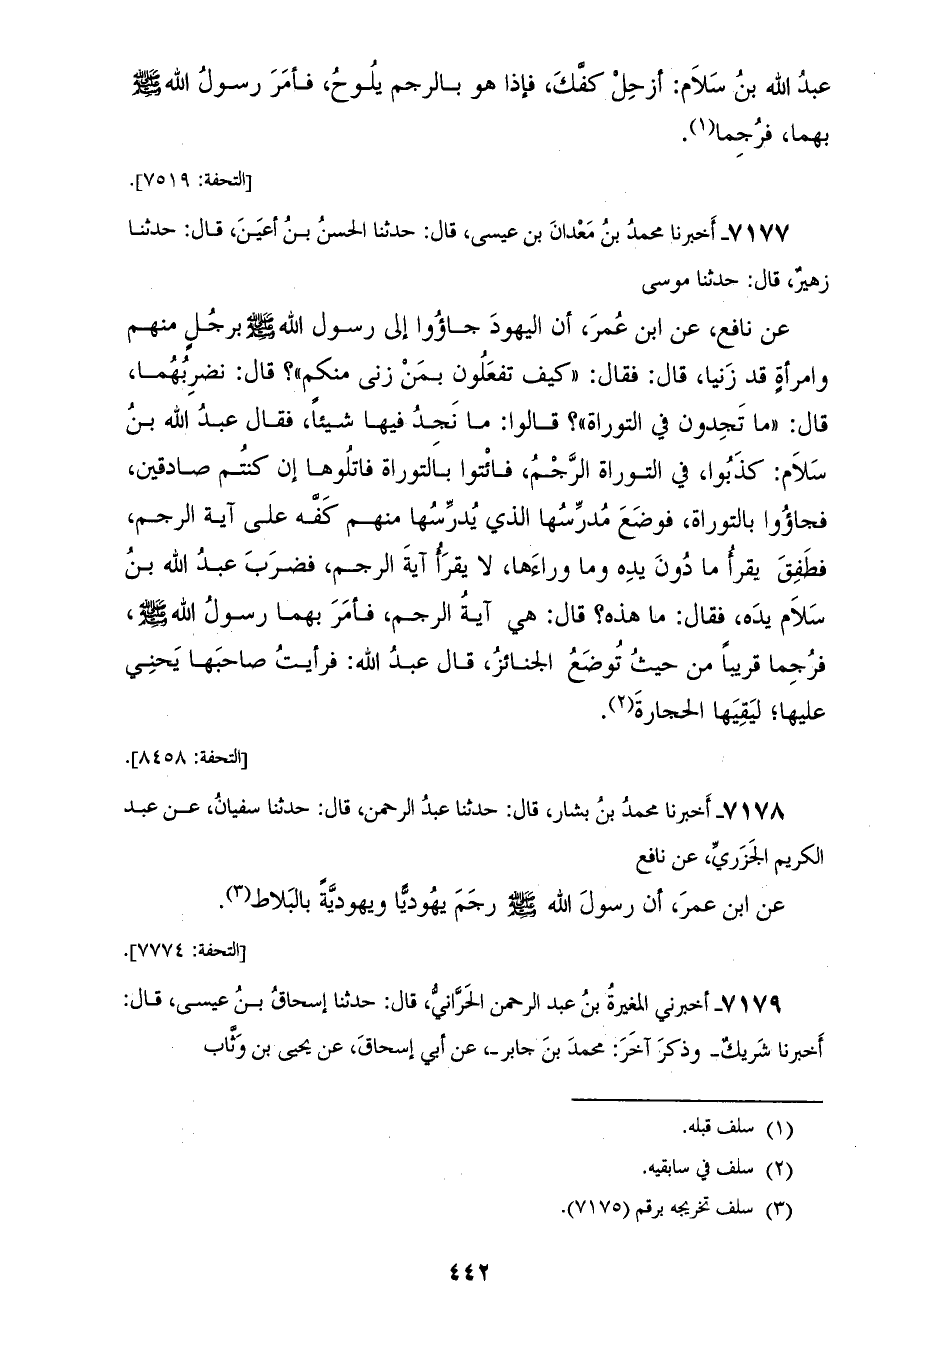 عبدُ الله بنُ سَلاَم: أزحِلْ كفَّكَ، فإذا هو بالرجم يلُوحُ، فأمَرَ رسولُ الله ﷺ
بهما، فرُجِما(١).
[التحفة: ٧٥١٩].
٧١٧٧ـ أَخبرنا محمدُ بنُ مَعْدانَ بن عيسى، قال: حدثنا الحسنُ بنُ أعيَنَ، قال: حدثنا
زهيرٌ، قال: حدثنا موسى
عن نافع، عن ابن عُمرَ، أن اليهودَ جاؤُوا إلى رسول الله ﷺ برجُلٍ منهم
وامرأةٍ قد زَنيا، قال: فقال: «كيف تفعَلُون بمَنْ زنى منكم»؟ قال: نضرِبُهُما،
قال: «ما تَجِدون في التوراة»؟ قالوا: ما نَجِدُ فيها شيئاً، فقال عبدُ الله بنُ
سَلاَم: كذَبُوا، في التوراة الرَّجْمُ، فائْتوا بالتوراة فاتلُوها إن كنتُم صادقين،
فجاؤُوا بالتوراة، فوضَعَ مُدرِّسُها الذي يُدرِّسُها منهم كَفَّه على آية الرجم،
فطَفِقَ يقرأُ ما دُونَ يدِه وما وراءَها، لا يقرَأُ آيةَ الرجم، فضرَبَ عبدُ الله بنُ
سَلاَم يدَه، فقال: ما هذه؟ قال: هي آيةُ الرجم، فأمَرَ بهما رسولُ الله ﷺ،
فرُجِما قريباً من حيثُ تُوضَعُ الجنائزُ، قال عبدُ الله: فرأيتُ صاحبَها يَحنِي
عليها؛ ليَقِيَها الحجارةَ(٢).
[التحفة: ٨٤٥٨].
٧١٧٨ـ أَخبرنا محمدُ بنُ بشار، قال: حدثنا عبدُ الرحمن، قال: حدثنا سفيانُ، عن عبد
الكريم الجَزَريِّ، عن نافع
عن ابن عمرَ، أن رسولَ الله ﷺ رجَمَ يهُوديًّا ويهوديَّةً بالبَلاط(٣).
[التحفة: ٧٧٧٤].
٧١٧٩ـ أخبرني المغيرةُ بنُ عبد الرحمن الحَرَّانيُّ، قال: حدثنا إسحاقُ بنُ عيسى، قال:
أَخبرنا شَريكٌ ـ وذكرَ آخَرَ: محمدَ بنَ جابر ـ، عن أبي إسحاقَ، عن يحيى بن وَثَّاب
(١) سلف قبله.
(٢) سلف في سابقيه.
(٣) سلف تخريجه برقم (٧١٧٥).
٤٤٢